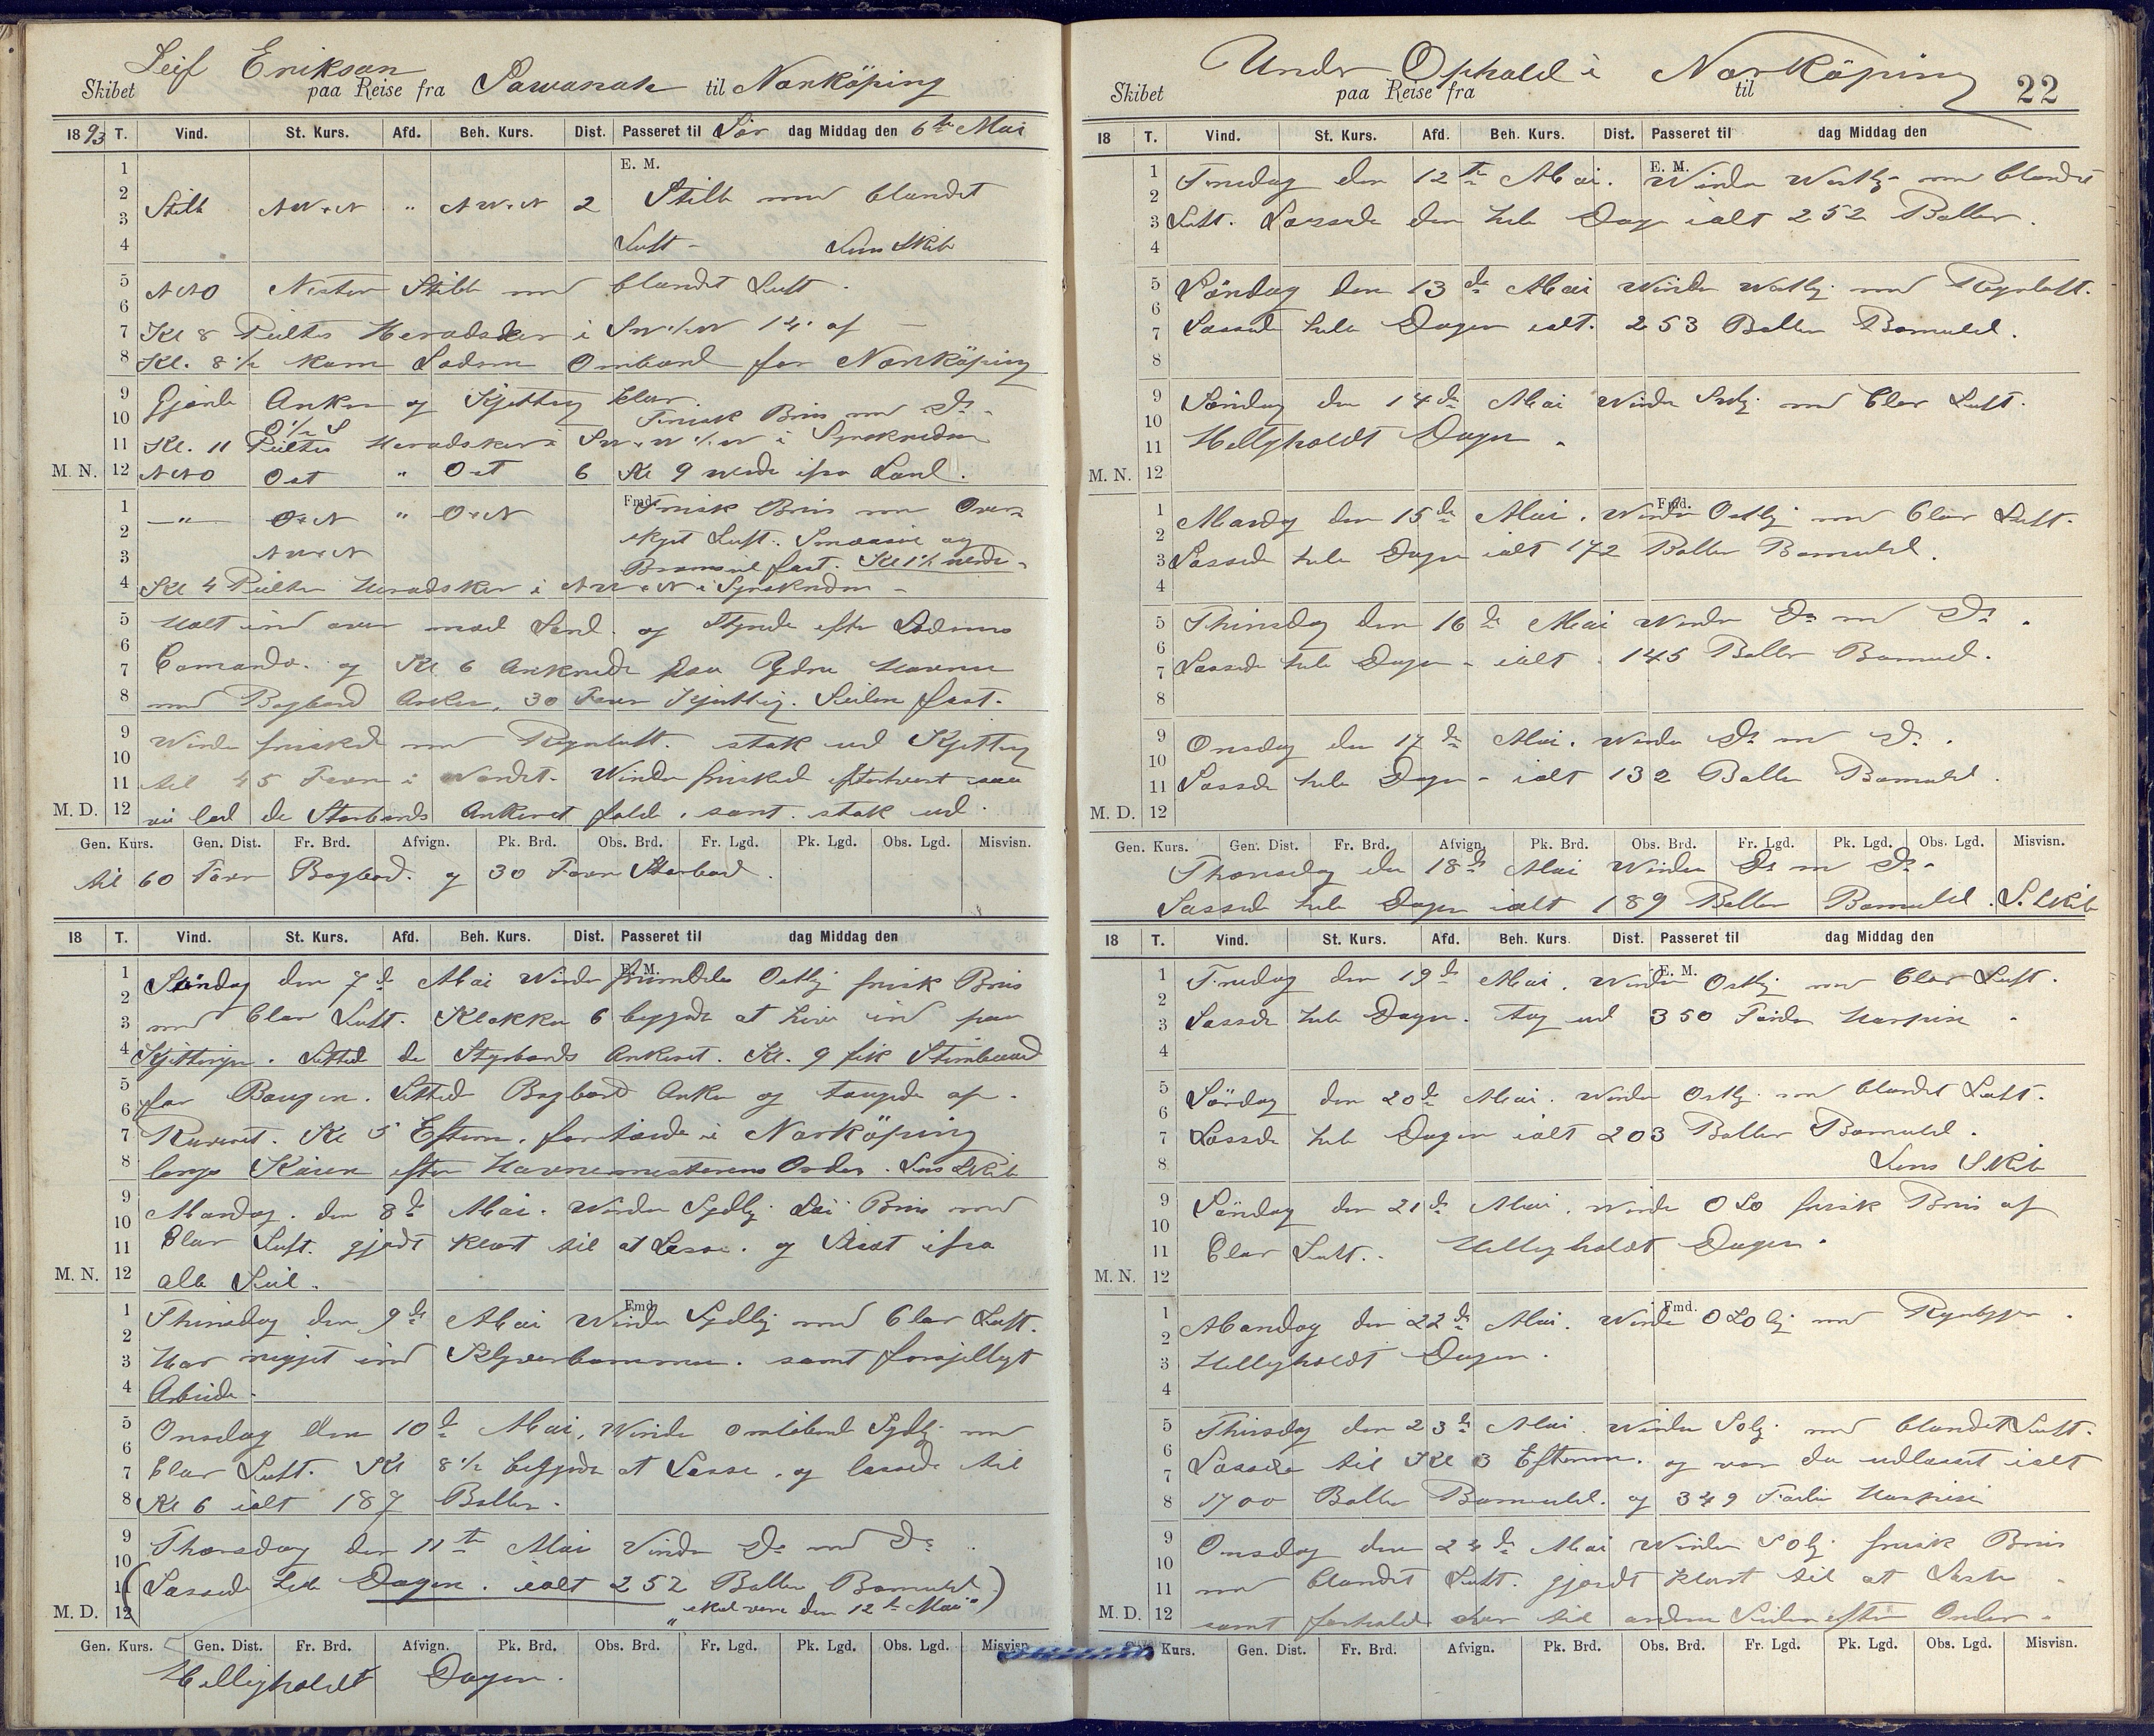 Leif Erikson
Skibet paa Reise fra Sawanah til Norköping
1893 T. Vind. St. Kurs. Afd. Beh. Kurs. Dist. Passeret til Lör dag Middag den 6te Mai
E. M.
1
2 Stille NW.N " NW.N 2 Stille med blandet
3
4 Luft - Lens Skib
5 NNO Nesten Stille med blandet Luft.
6
7 Kl 8 Peiltes Heradsker i
8 Kl. 8 1/2 kom Lodsen Ombord for Norköping
9 Gjorde Anker og Kjetting klar.
10 Frisk Bris med Do.
11 Kl. 11 Peiltes Heradsker i Synskredsen
M. N. 12 NNO Ost " Ost 6 Kl 9 vendte ifra Land.
Fmd.
1 " O.N " O.N Frisk Bris med Over
2 skyet Luft. Smaaseil og
3 NW.N Bramseil fast. Kl 1 1/2 vendte
4 Kl 4 Peiltes Heradsker i NW.N i Synskredsen
5 Holt ind over mod Land og Styrede efter Lodsens
6
7 Comando. og Kl 6 Ankrede paa Ydre Havnen
8 med Bagbord Anker, 30 Favn Kjetting. Seilene fast.
9 Vinden friskede med Regnluft. stak ud Kjetting
10
11 til 45 Favn i Vandet. Vinden friskede efterhvert saa
M. D. 12 vi lod de Storbords Ankeret falde, samt stak ud
Gen. Kurs. Gen. Dist. Fr. Brd. Afvign. Pk. Brd. Obs. Brd. Fr. Lgd. Pk. Lgd. Obs. Lgd. Misvisn.
til 60 Favn Bagbord. og 30 Favn Storbord.
18 T. Vind. St. Kurs. Afd. Beh. Kurs. Dist. Passeret til dag Middag den
E. M.
1 Söndag den 7de Mai Vinden fremdeles Ostlig frisk Bris
2
3 med Clar Luft. Klokken 6 begynte at hive ind paa
4 Kjettingen. Lettede de Styrbords Ankeret. Kl. 9 fik Stimbaad
5 for Baugen. Lettede Bagbord Anker og taugede op
6
7 Reveret. Kl 5 Efterm. fortöide i Norköping
8 langs Kaien efter Havnemesterens Order. Lens Skib
9 Mandag den 8de Mai. Vinden Sydlig Lai Bris med
10
11 Clar Luft. gjordt klart til at Losse. og Slaaet ifra
M. N. 12 alle Seil.
Fmd.
1 Thirsdag den 9de Mai Vinden Sydlig med Clar Luft.
2
3 Har rigget ind Klyverbommen. samt forsjelligt
4 Arbeide.
5 Onsdag den 10de Mai, Vinden omlöbende Sydlig med
6
7 Clar Luft. Kl 8 1/2 begynte at Losse, og lossede til
8 Kl 6 ialt 187 Baller.
9 Thorsdag den 11te Mai Vinden Do med Do.
10
11 (Lossede hele Dagen. ialt 252 Baller Bomuld)
M. D. 12 "skal vere den 12te Mai"
Gen. Kurs. Gen. Dist. Fr. Brd. Afvign. Pk. Brd. Obs. Brd. Fr. Lgd. Pk. Lgd. Obs. Lgd. Misvisn.
Helligholdt Dagen.
Under Ophold i Norköping 22
Skibet paa Reise fra til
18 T. Vind. St. Kurs. Afd. Beh. Kurs. Dist. Passeret til dag Middag den
E. M.
1 Fredag den 12te Mai. Vinden Westlig med blandet
2
3 Luft. Lossede den hele Dag ialt 252 Baller.
4
5 Lördag den 13de Mai Vinden Westlig med Regnluft.
6
7 Lossede hele Dagen ialt. 253 Baller Bomuld.
8
9 Söndag den 14de Mai Vinden med Clar Luft.
10
11 Helligholdt Dagen.
M. N. 12
Fmd.
1 Mandag den 15de Mai. Vinden Ostlig med Clar Luft.
2
3 Lossede hele Dagen ialt 172 Baller Bomuld.
4
5 Thirsdag den 16de Mai Vinden Do med Do.
6
7 Lossede hele Dagen - ialt 145 Baller Bomuld.
8
9 Onsdag den 17de Mai. Vinden Do med Do.
10
11 Lossede hele Dagen - ialt 132 Baller Bomuld.
M. D. 12
Gen. Kurs. Gen. Dist. Fr. Brd. Afvign. Pk. Brd. Obs. Brd. Fr. Lgd. Pk. Lgd. Obs. Lgd. Misvisn.
Thorsdag den 18de Mai Vinden Do m Do.
Lossede hele Dagen ialt 189 Baller Bomuld. L. Skib
18 T. Vind. St. Kurs. Afd. Beh. Kurs. Dist. Passeret til dag Middag den
E. M.
1 Fredag den 19de Mai. Vinden Ostlig med Clar Luft.
2
3 Lossede hele Dagen. Tog ud 350 Harpix
4
5 Lördag den 20de Mai. Vinden Ostlig med blandet Luft.
6
7 Lossede hele Dagen ialt 203 Baller Bomuld.
8 Lens Skib
9 Söndag den 21de Mai. Vinden OSO frisk Bris af
10
11 Clar Luft. Helligholdt Dagen.
M. N. 12
Fmd.
1 Mandag den 22de Mai. Vinden OSOlig med Regnbyger.
2
3 Helligholdt Dagen.
4
5 Thirsdag den 23de Mai Vinden SOlig med blandet Luft.
6
7 Lossede til Kl 3 Efterm. og var da udlosset ialt
8 1700 Baller Bomuld. og 349 Harpix
9 Onsdag den 24de Mai Vinden SOlig frisk Bris
10
11 med blandet Luft. gjordt klart til at Laste
M. D. 12 samt forhalede til andre Siden efter Order.
Kurs. Gen. Dist. Fr. Brd. Afvign. Pk. Brd. Obs. Brd. Fr. Lgd. Pk. Lgd. Obs. Lgd. Misvisn.